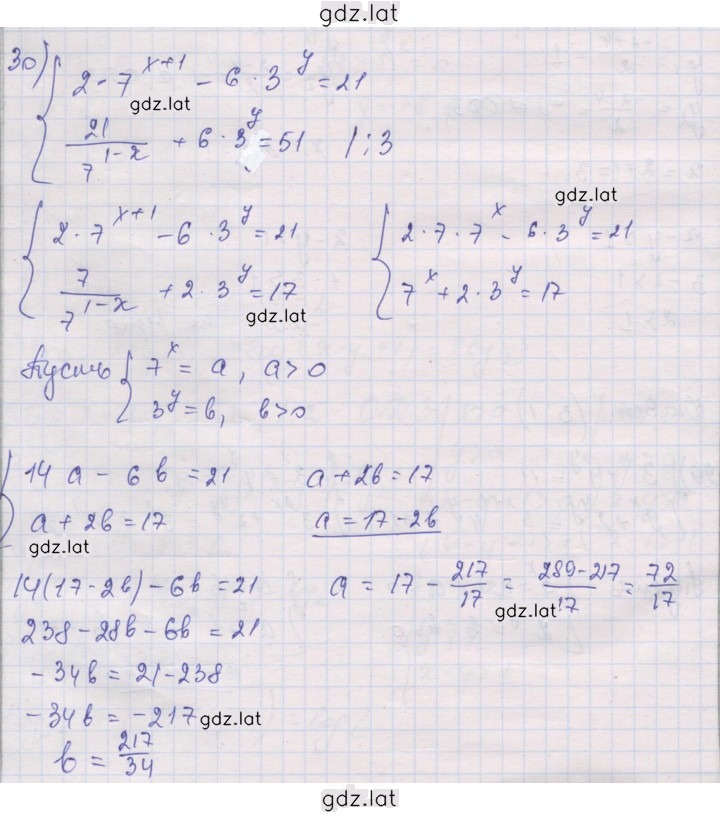 gdz.lat
30)
2 · 7^(x+1) − 6 · 3^y = 21
gdz.lat
21 / 7^(1−x) + 6 · 3^y = 51 | : 3
gdz.lat
2 · 7^(x+1) − 6 · 3^y = 21
2 · 7 · 7^x − 6 · 3^y = 21
7 / 7^(1−x) + 2 · 3^y = 17
7^x + 2 · 3^y = 17
gdz.lat
Пусть { 7^x = a, a > 0
3^y = b, b > 0
14 a − 6 b = 21
a + 2b = 17
a + 2b = 17
a = 17 − 2b
gdz.lat
14(17 − 2b) − 6b = 21
a = 17 − 217/17 = (289 − 217)/17 = 72/17
gdz.lat
238 − 28b − 6b = 21
− 34b = 21 − 238
− 34b = − 217
gdz.lat
b = 217/34
gdz.lat